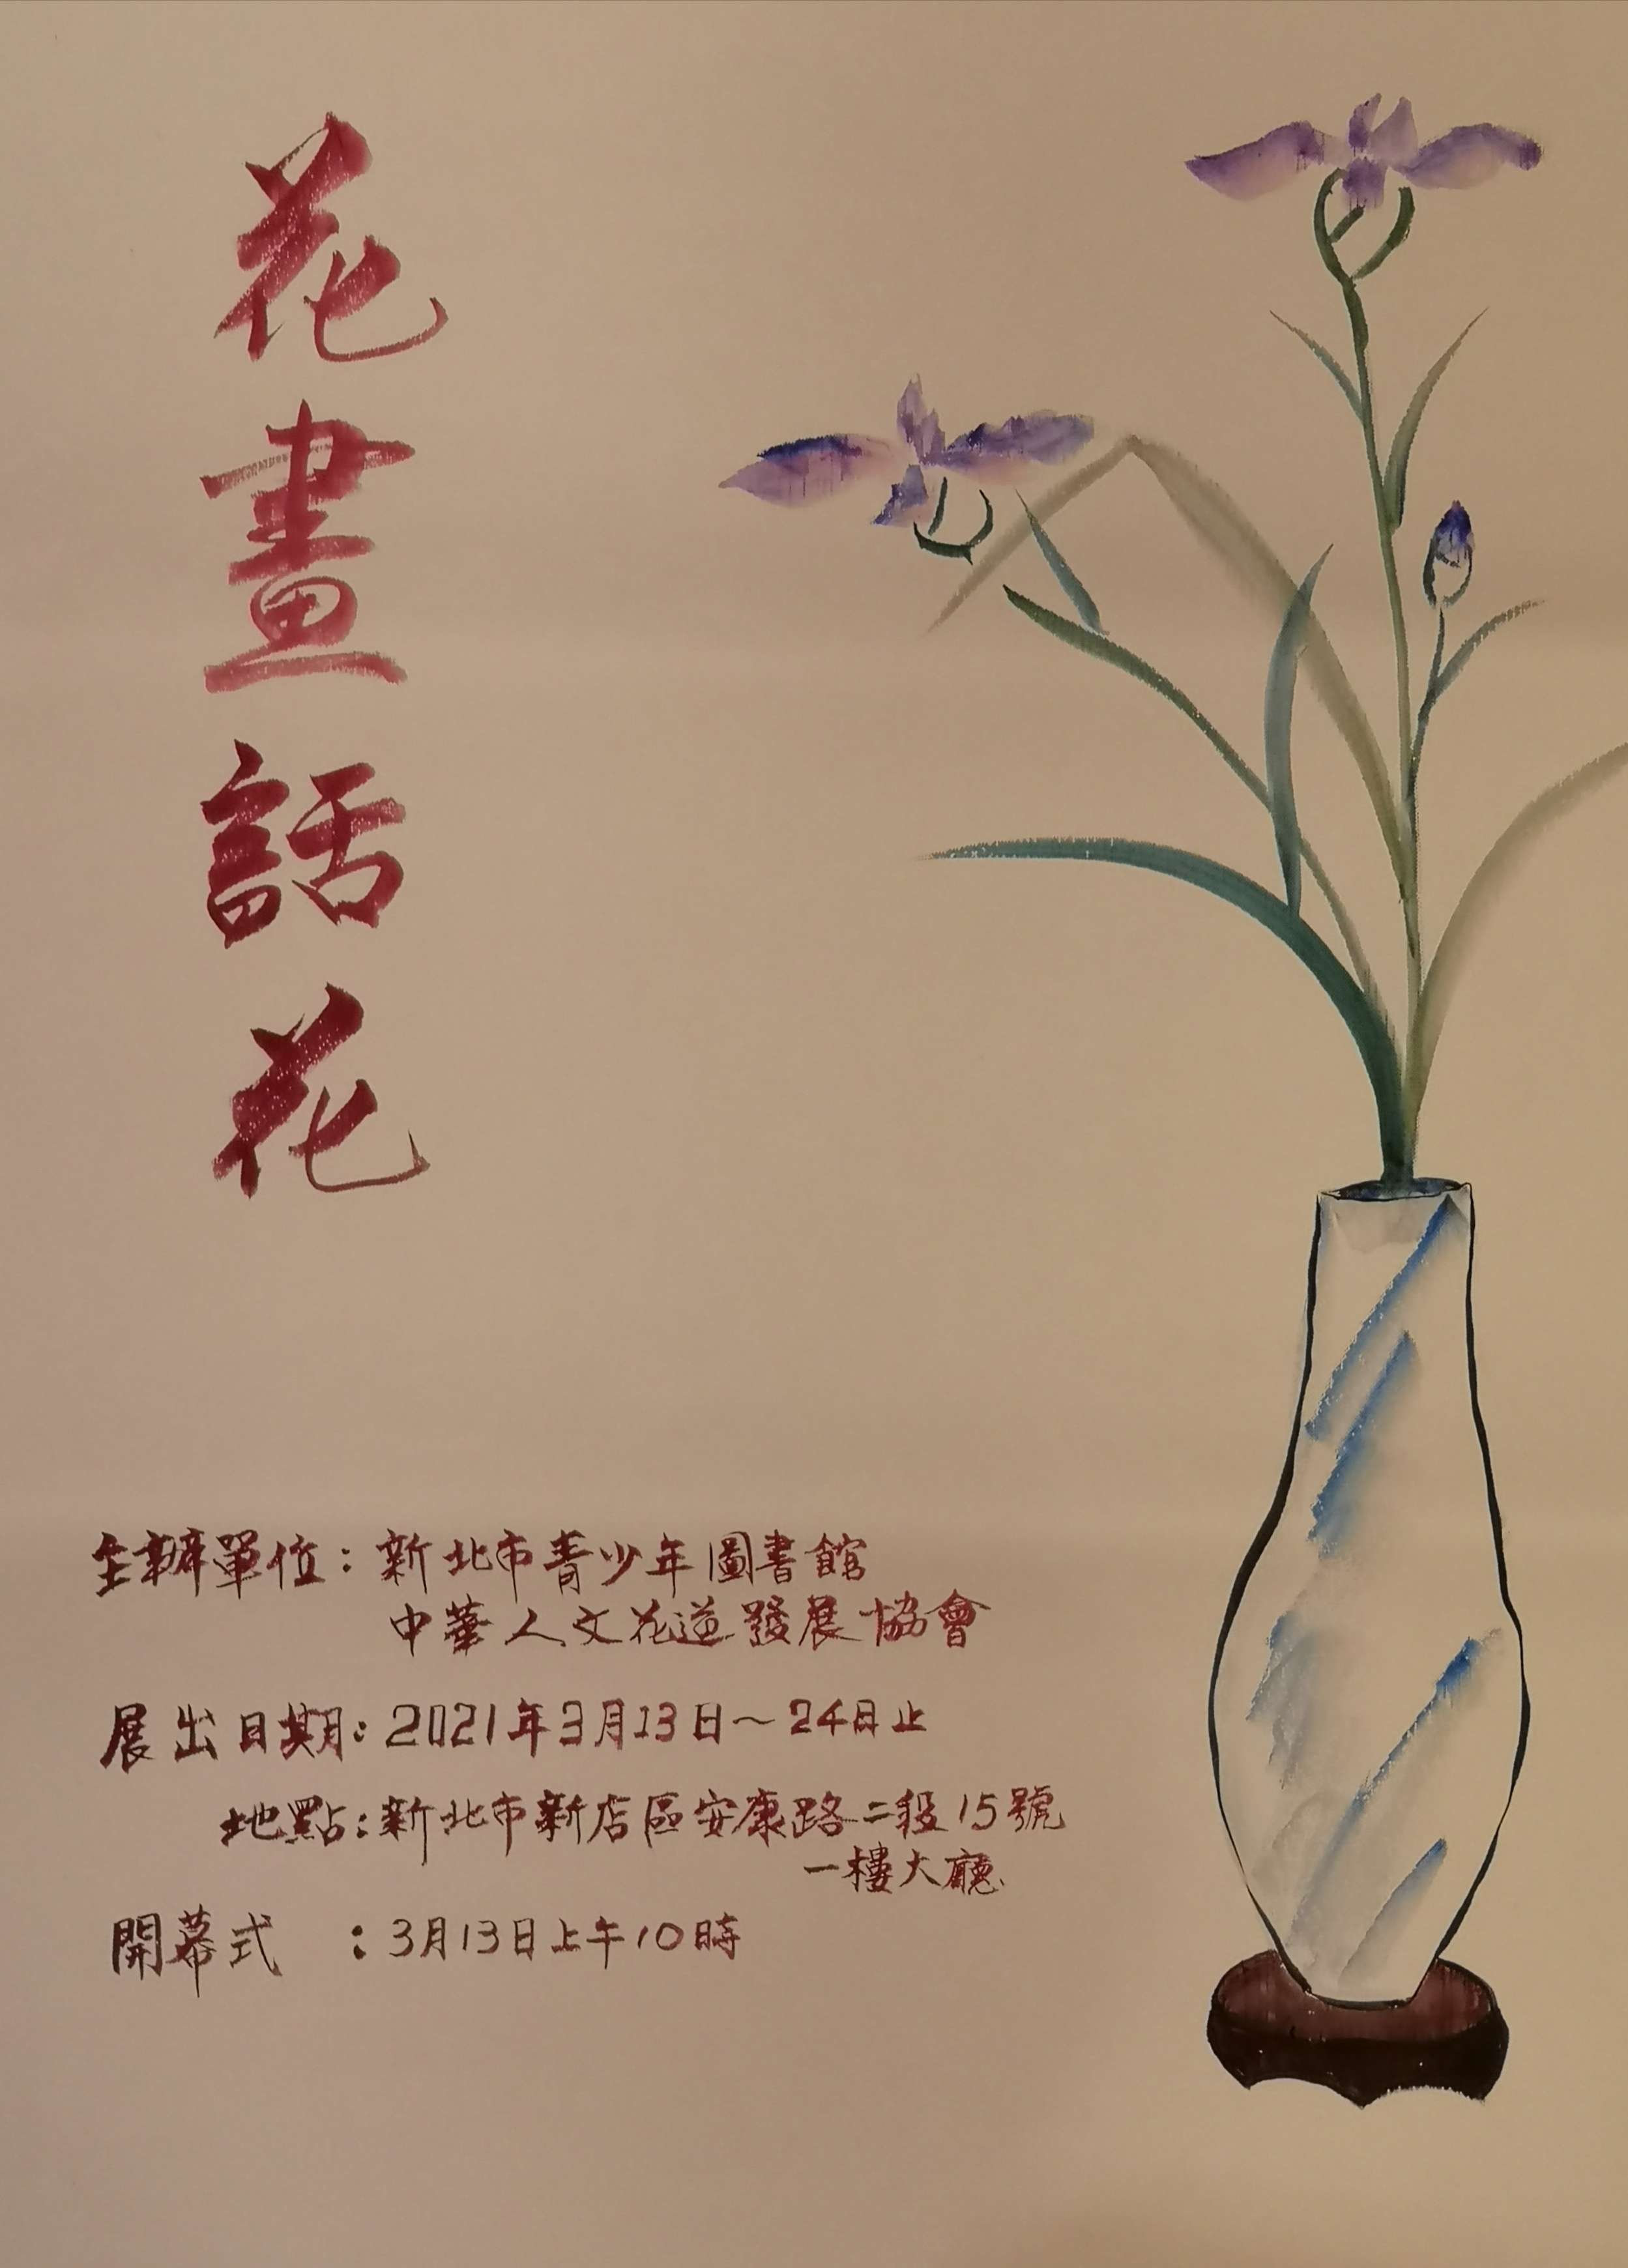 花畫話花
主辦單位：新北市青少年圖書館
中華人文花道發展協會
展出日期：2021年3月13日～24日止
地點：新北市新店區安康路二段15號
一樓大廳
開幕式：3月13日上午10時